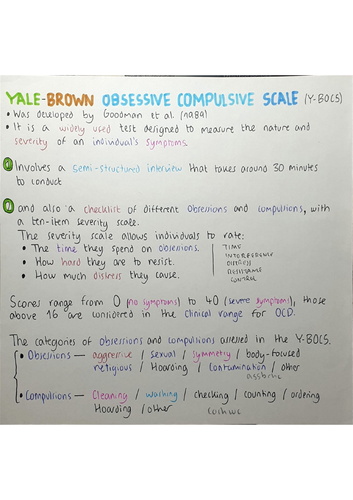 YALE-BROWN OBSESSIVE COMPULSIVE SCALE (Y-BOCS)
• Was developed by Goodman et al. (1989)
• It is a widely used test designed to measure the nature and
severity of an individual's symptoms.
① Involves a semi-structured interview that takes around 30 minutes
to conduct
② and also a checklist of different obsessions and compulsions, with
a ten-item severity scale.
The severity scale allows individuals to rate:
• The time they spend on obsessions.
• How hard they are to resist.
• How much distress they cause.
TIME
INTERFERENCE
DISTRESS
RESISTANCE
CONTROL
Scores range from 0 (no symptoms) to 40 (severe symptoms), those
above 16 are considered in the clinical range for OCD.
The categories of obsessions and compulsions assessed in the Y-BOCS.
• Obsessions — aggressive / sexual / symmetry / body-focused
religious / Hoarding / contamination / other
• Compulsions — Cleaning / washing / checking / counting / ordering
Hoarding / other